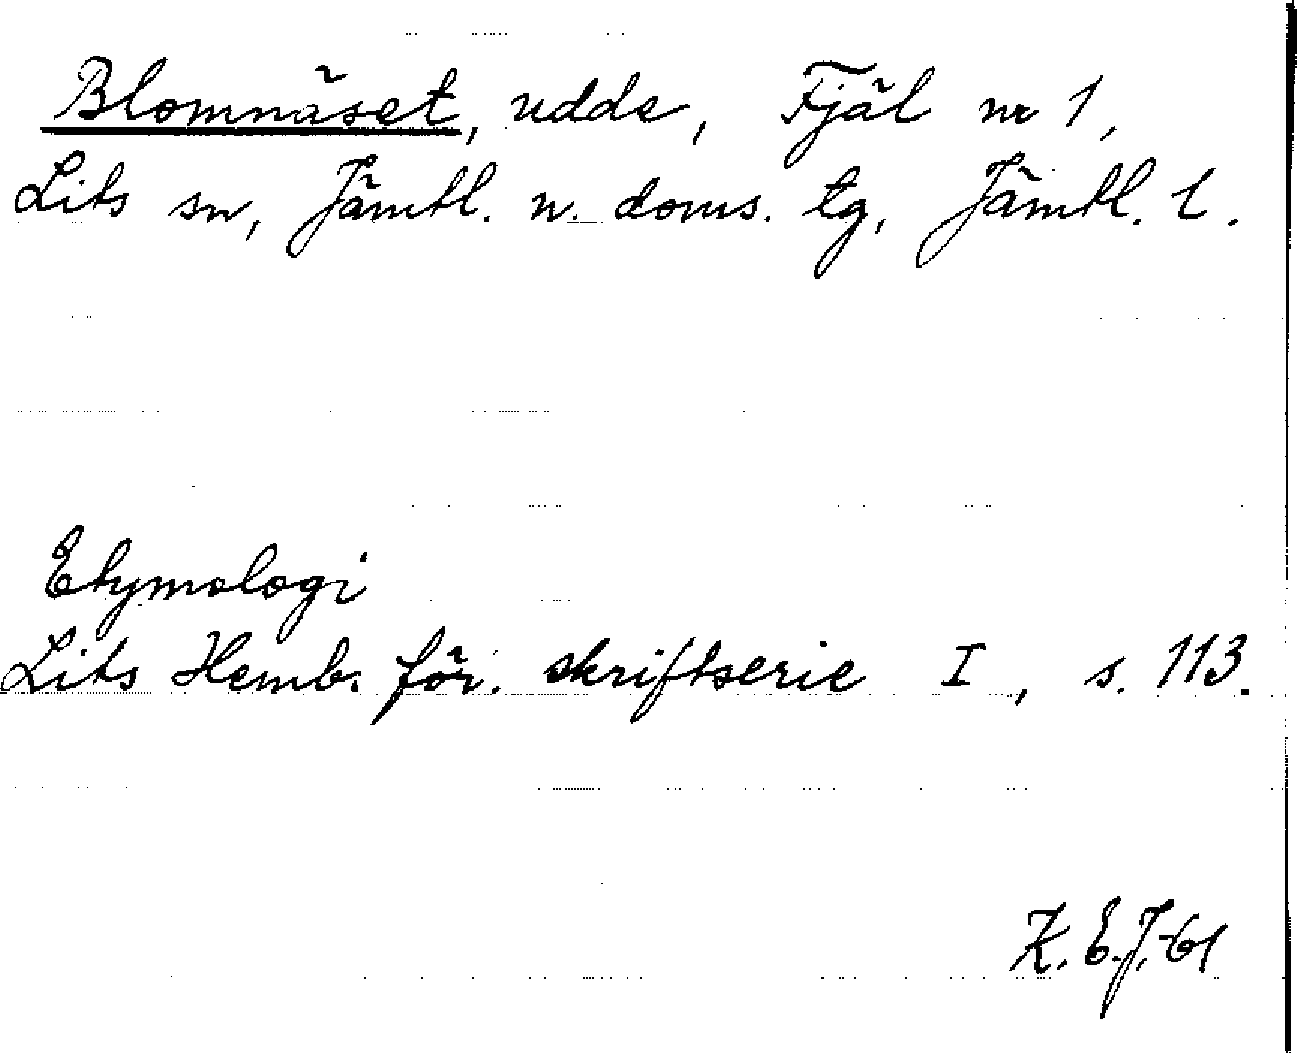 Blomnäset, udde, Fjäl nr 1,
Lits sn, Jämtl. n. doms. tg, Jämtl. l.
Etymologi
Lits Hemb. för. skriftserie I, s. 113.
K. E. J. -61